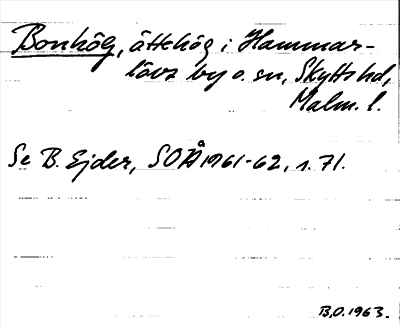 Bonhög, ättehög i Hammar-
lövs by o. sn, Skytts hd,
Malm. l.
Se B. Ejder, SOÅ 1961-62, s. 71.
B.O. 1963.